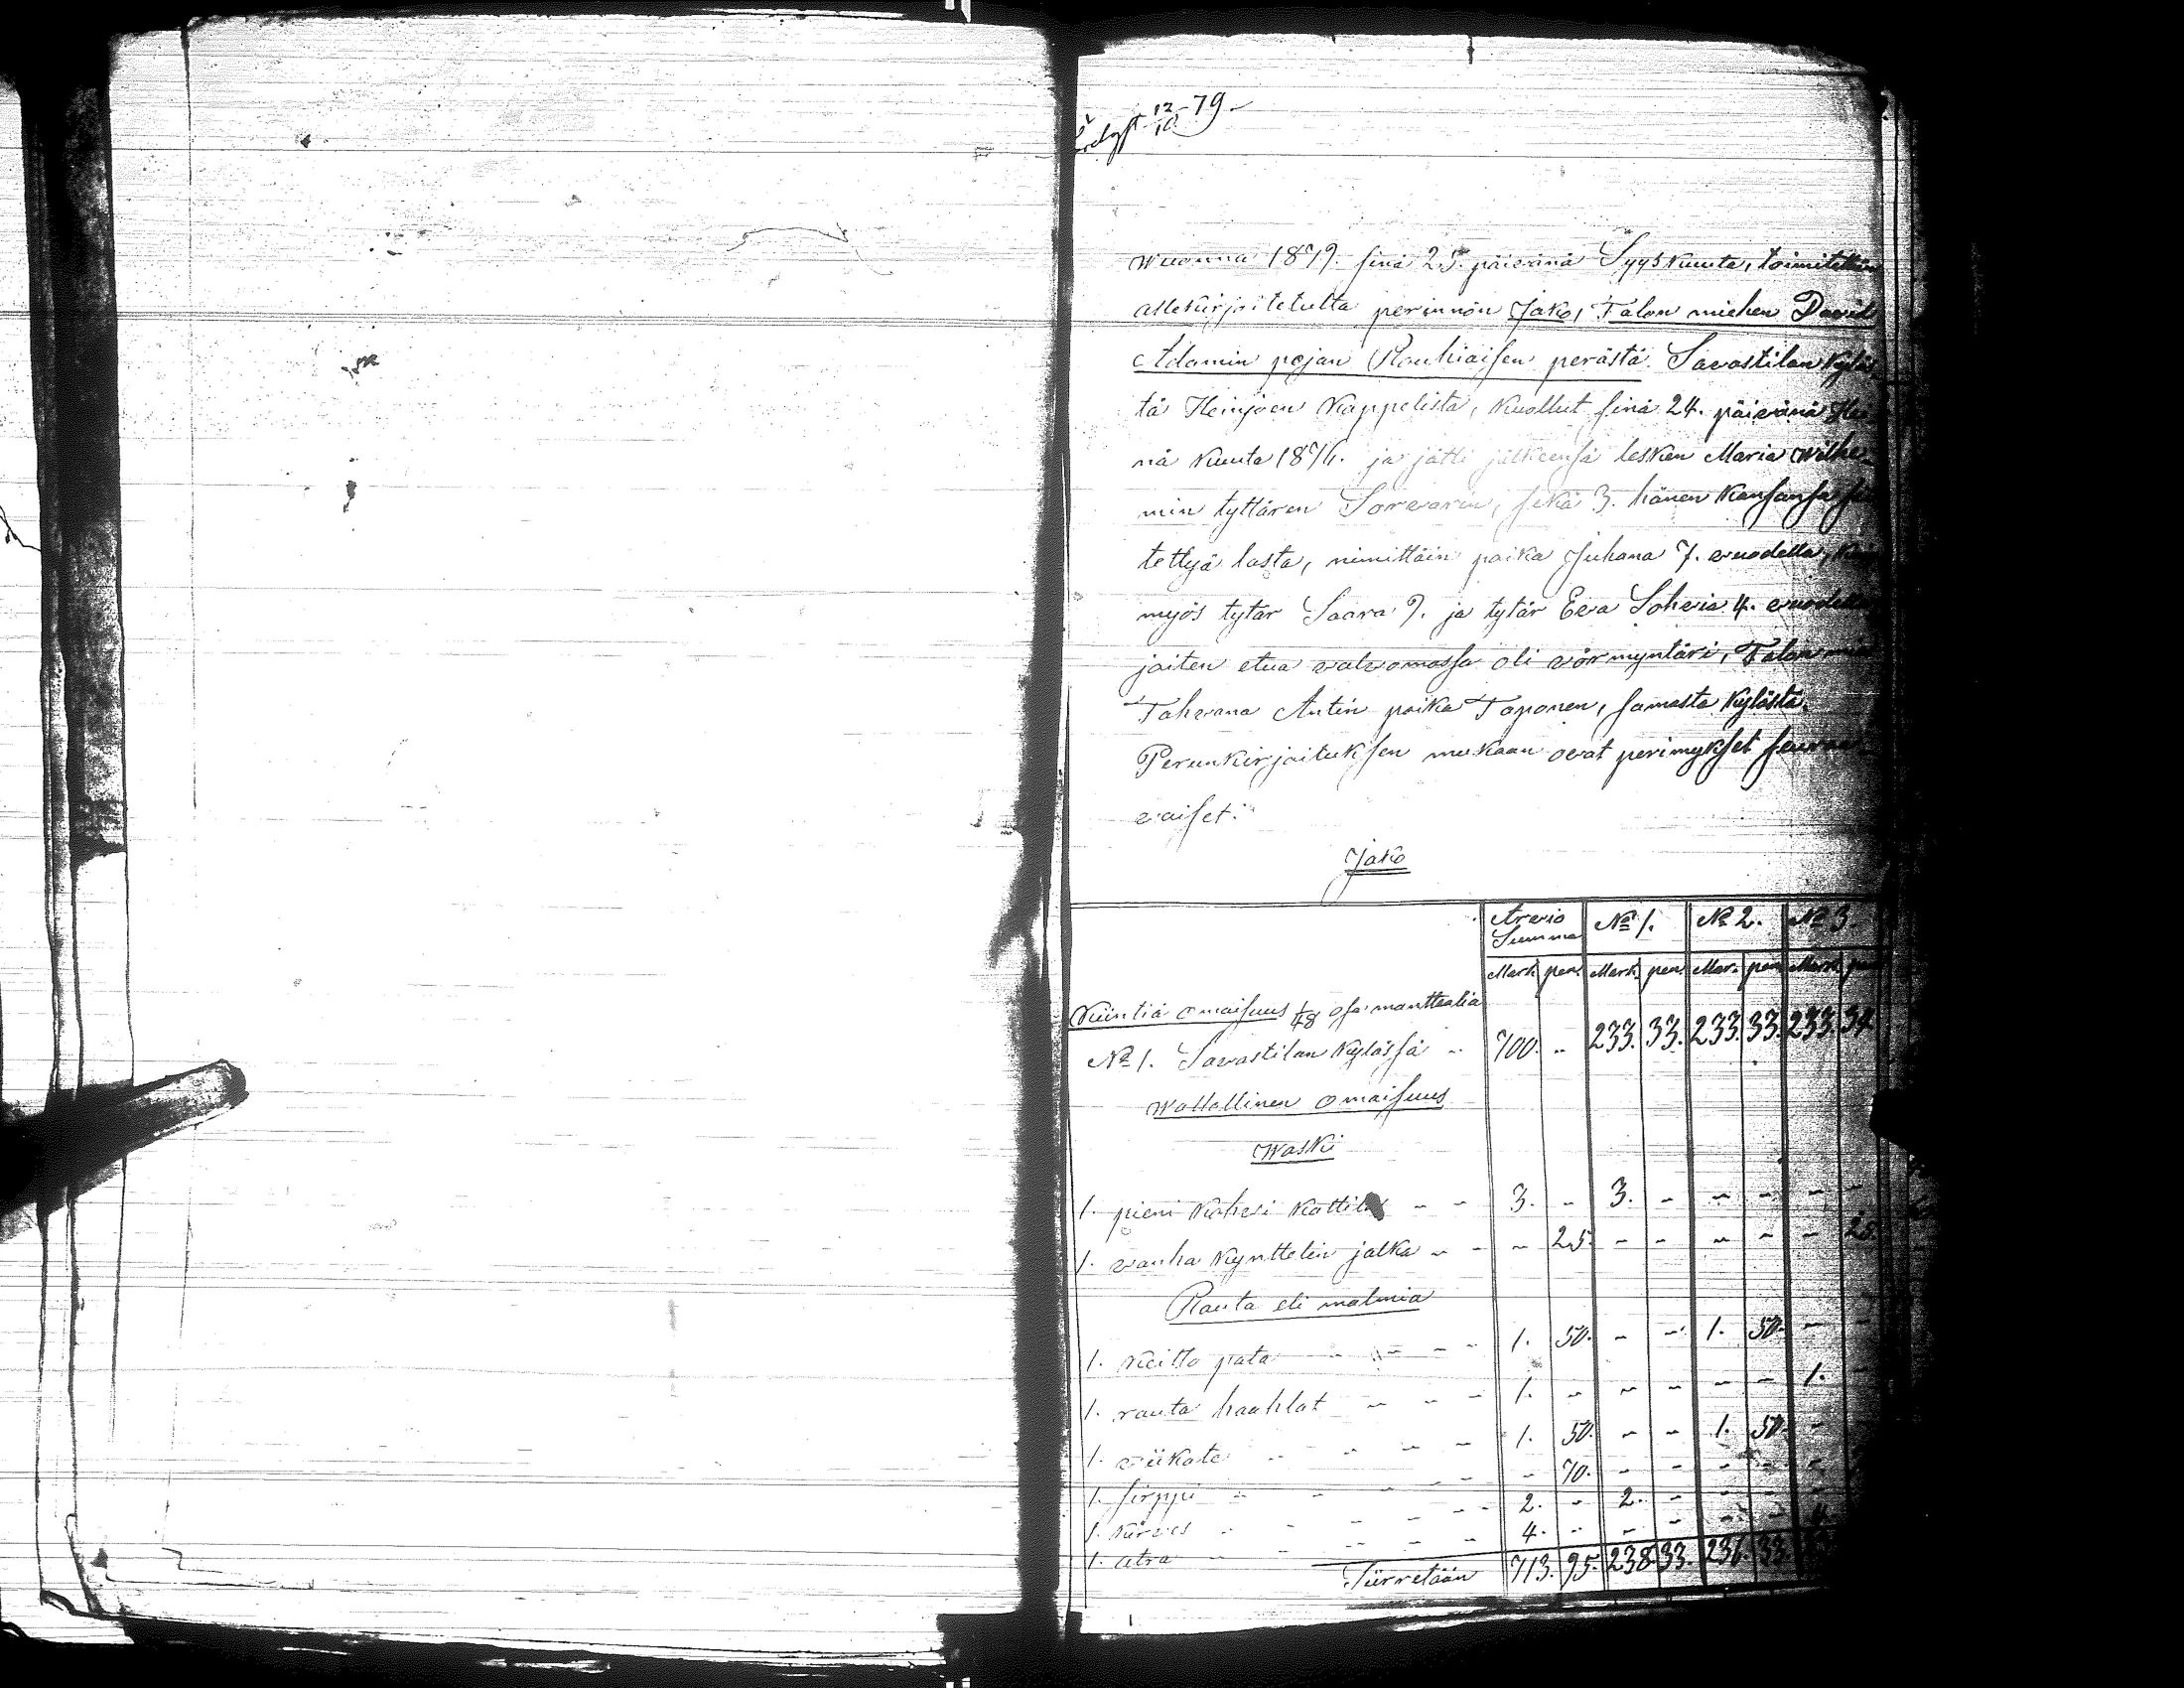 12/10 79
Wuonna 1879. sinä 25. päivänä Syyskuuta, toimitettiin
allekirjoitetulta perinnön Jako, Talon miehen David
Adamin pojan Rauhiaisen perästä. Savastilan kyläs-
tä Heinjoen Kappelista, kuollut sinä 24. päivänä Hei-
nä kuuta 1876. ja jätti jälkeensä lesken Maria Wilhe-
min tyttären Sorvarin, sekä 3. hänen kansansa
tettyä lasta, nimittäin poika Juhana 7. vuodella,
myös tytär Saara 9. ja tytär Eva Sohvia 4. vuodella
joiten etua valvomassa oli vörmyntäri, Talon
Tahvana Antin poika Toponen, samasta kylästä.
Perunkirjoituksen mukaan ovat perimykset seuraa-
vaiset:
Jako
Arvio Summa № 1. № 2. № 3.
Mark. pen. Mark. pen. Mar. pen. Mark. pen.
Kiintiä omaisuus 1/48 osa manttaalia
№ 1. Savastilan kylässä 700. - 233. 33. 233. 33. 233. 34.
Wallallinen omaisuus
Waski
1. pieni kahvi kattila 3. - 3. - - - - -
1. vanha kynttelin jalka - 25. - - - - - 25.
Rauta eli malmia
1. keitto pata 1. 50. - - 1. 50. - -
1. rauta haahlat 1. - - - - - 1. -
1. viikate 1. 50. - - 1. 50. -
1. sirppi - 70. - - - - -
1. kirves 2. - 2. - - - -
1. atra 4. - - - - - 4.
Siirretään 713. 95. 238. 33. 236. 33.